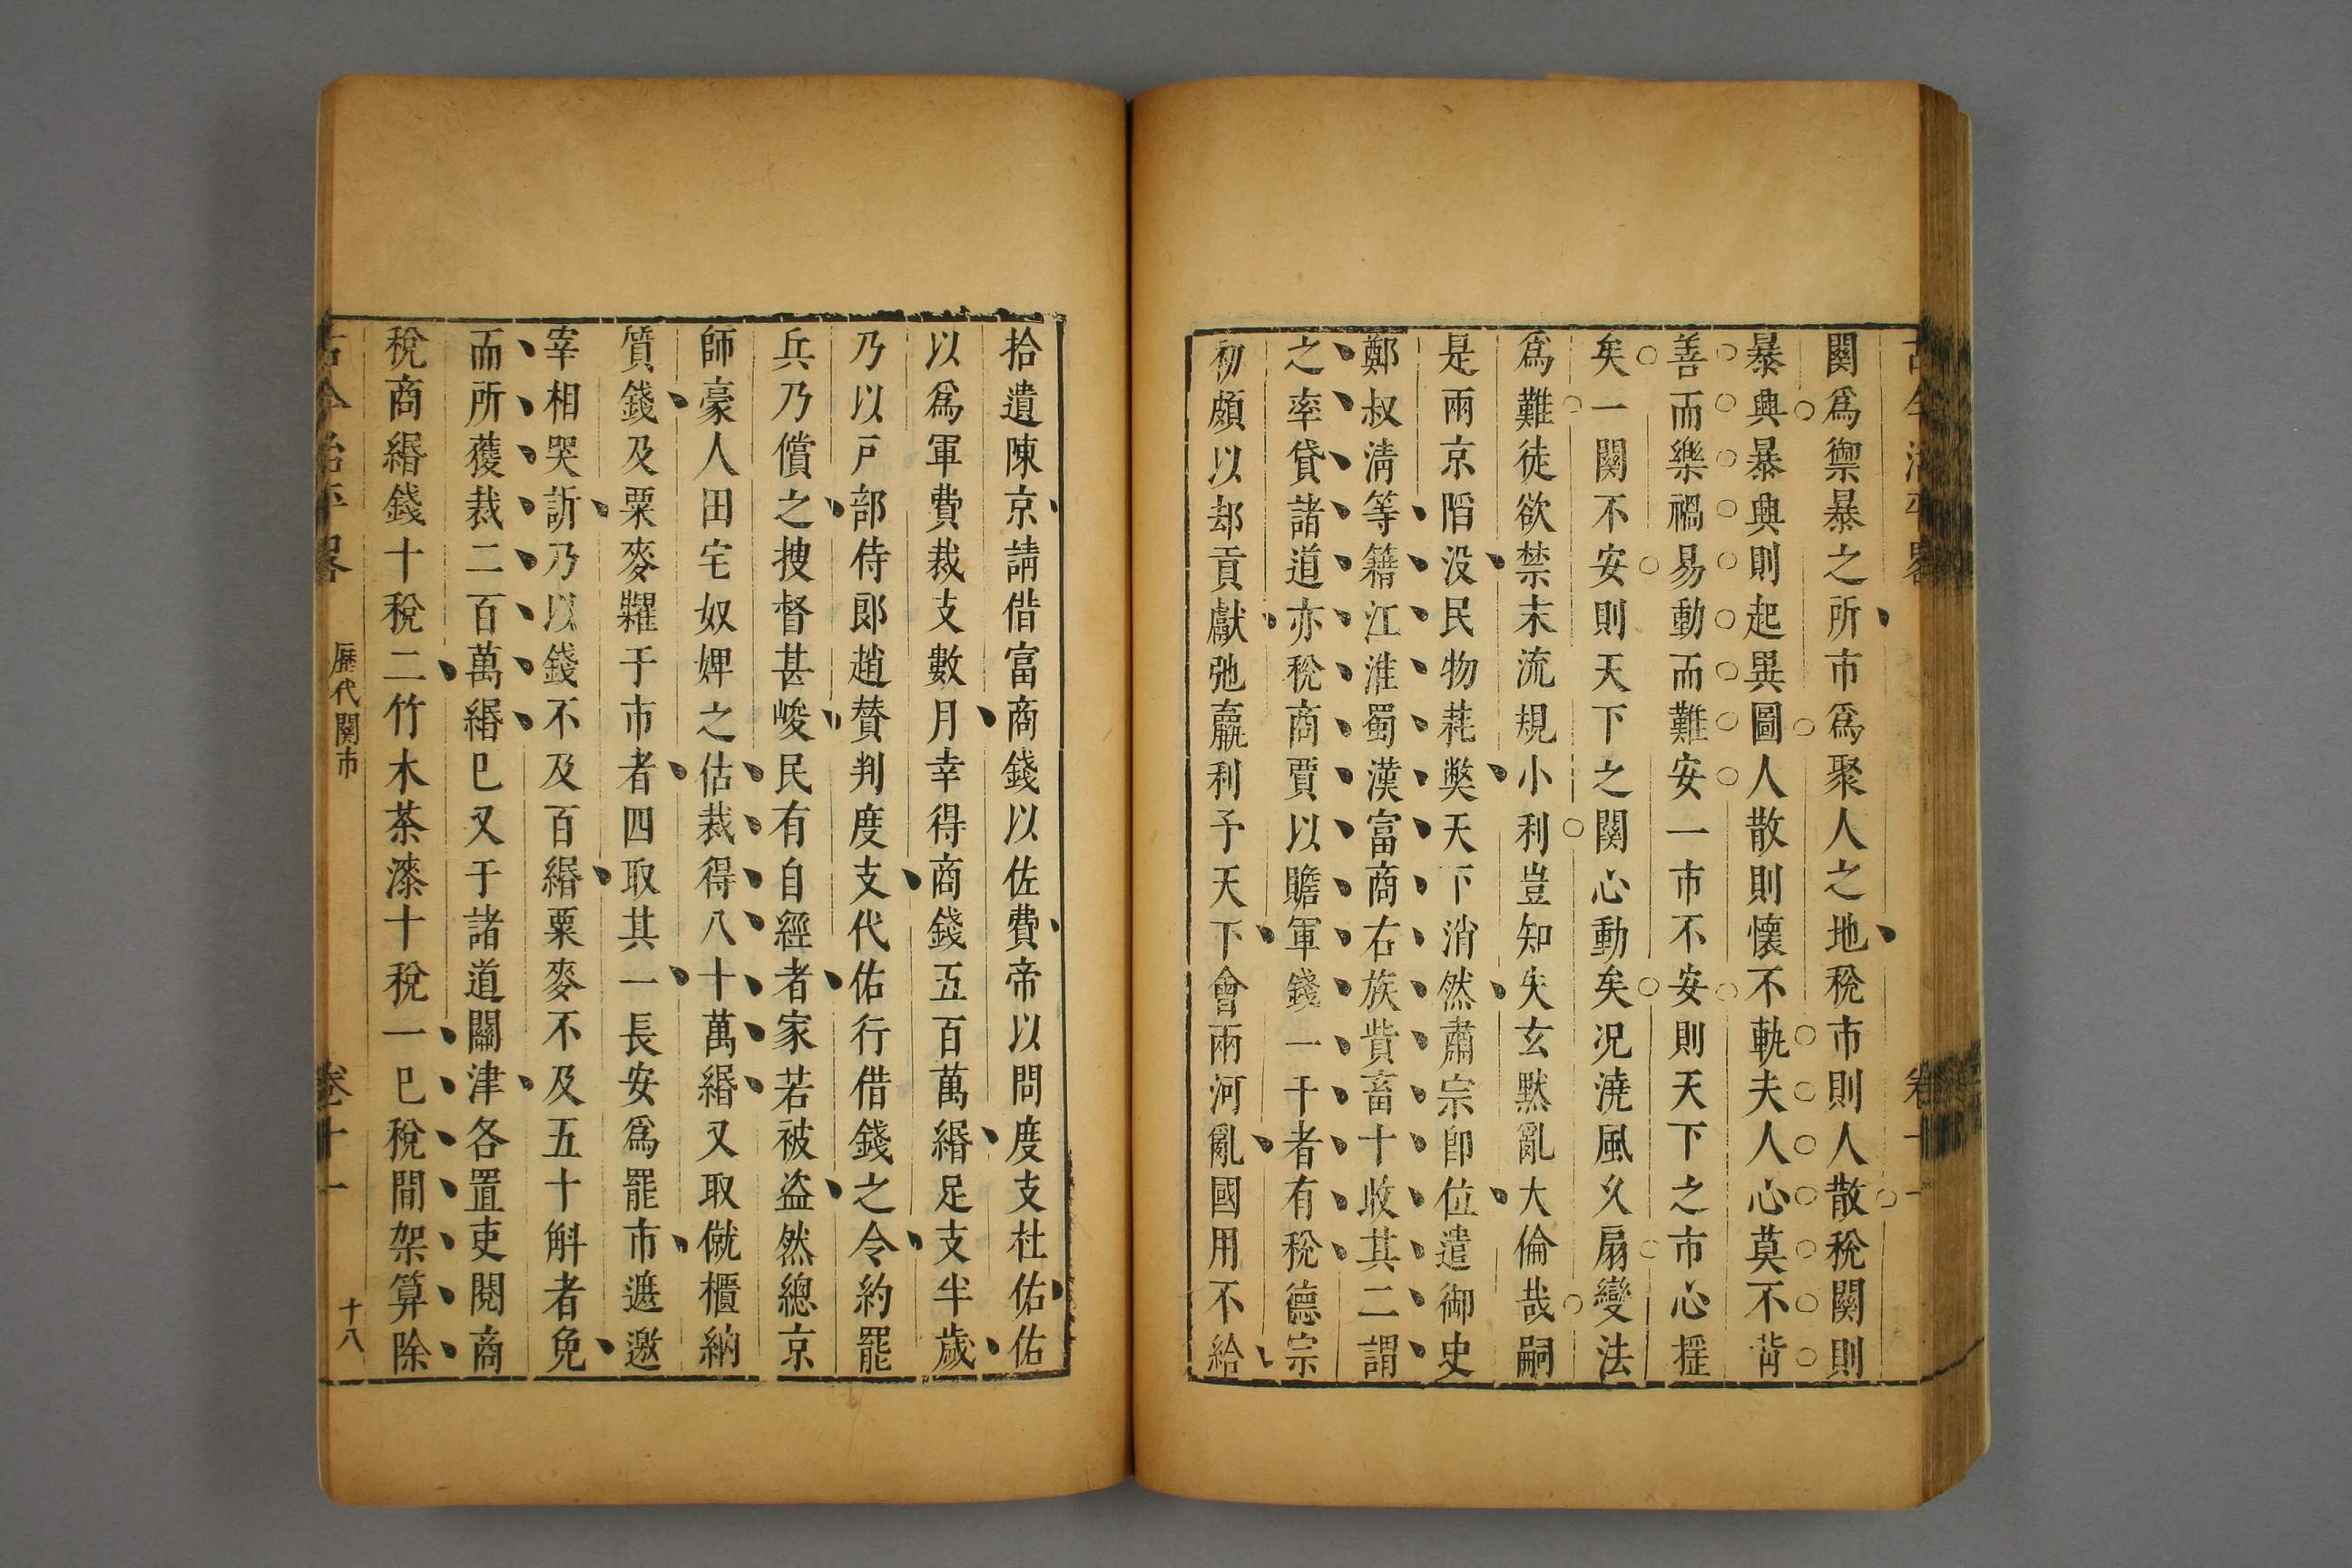 關爲禦暴之所市爲聚人之地稅市則人散稅關則
暴興暴興則起異圖人散則懷不軌夫人心莫不背
善而樂禍易動而難安一市不安則天下之市心搖
矣一關不安則天下之關心動矣况澆風久扇變法
爲難徒欲禁末流規小利豈知失玄默亂大倫哉嗣
是兩京陷没民物耗獘天下消然肅宗卽位遣御史
鄭叔淸等籍江淮蜀漢富商右族貲畜十收其二謂
之率貸諸道亦稅商賈以贍軍錢一千者有稅德宗
初頗以却貢獻弛羸利予天下會兩河亂國用不給
拾遺陳京請借富商錢以佐費帝以問度支杜佑佑
以爲軍費裁支數月幸得商錢五百萬緡足支半歲
乃以戸部侍郎趙贊判度支代佑行借錢之令約罷
兵乃償之搜督甚峻民有自經者家若被盗然總京
師豪人田宅奴婢之估裁得八十萬緡又取僦櫃納
質錢及粟麥糶于市者四取其一長安爲罷市遮邀
宰相哭訴乃以錢不及百緡粟麥不及五十斛者免
而所獲裁二百萬緡巳又于諸道關津各置吏閱商
稅商緡錢十稅二竹木茶漆十稅一巳稅間架算除
古今治平畧 歷代關市 卷十一 十八